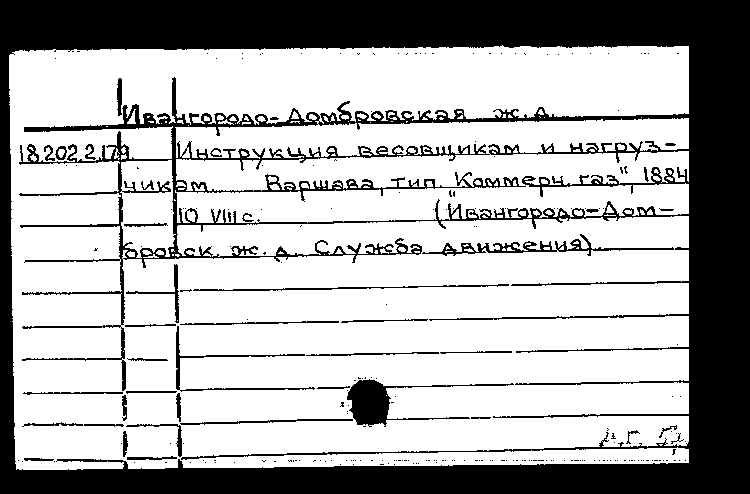 Ивангородо-Домбровская ж. д.
18.202.2.179. Инструкция весовщикам и нагруз-
чикам. Варшава, тип. "Коммерч. газ", 1884
10, VIII с. (Ивангородо-Дом-
бровск. ж. д. Служба движения).